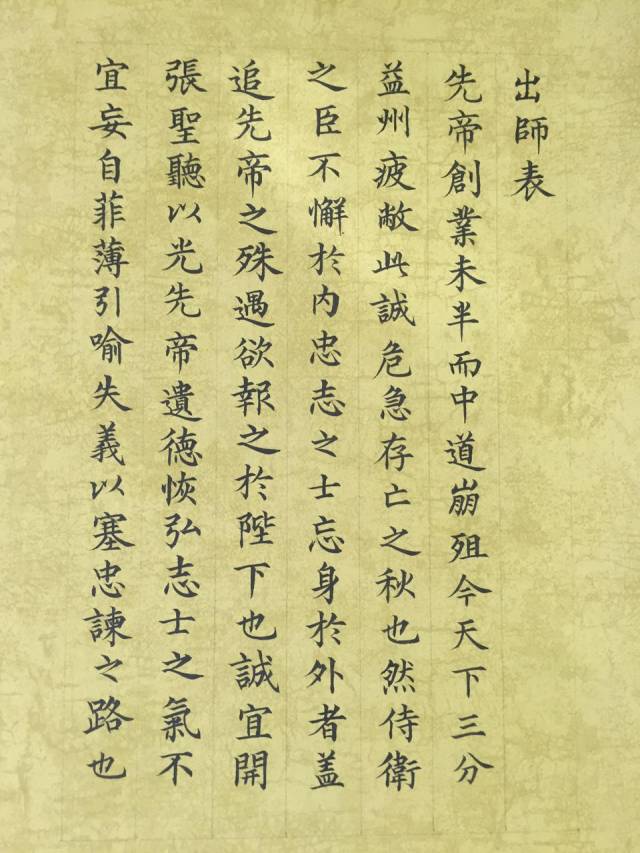 出師表
先帝創業未半而中道崩殂今天下三分
益州疲敝此誠危急存亡之秋也然侍衛
之臣不懈於內忠志之士忘身於外者盖
追先帝之殊遇欲報之於陛下也誠宜開
張聖聽以光先帝遺德恢弘志士之氣不
宜妄自菲薄引喻失義以塞忠諫之路也